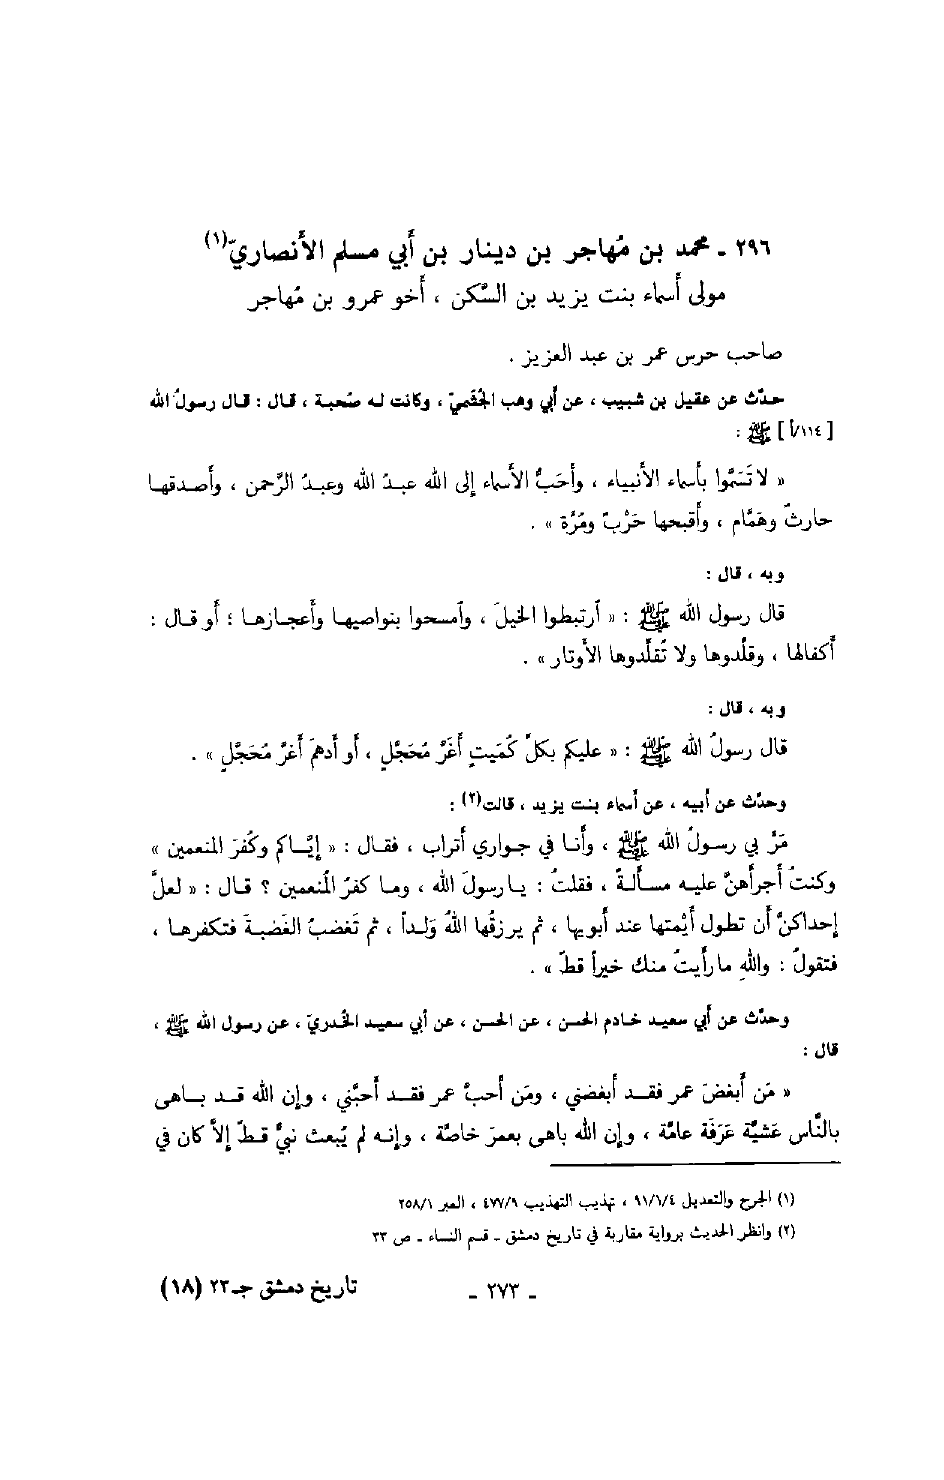 ٢٩٦ ـ محمد بن مُهاجر بن دينار بن أبي مسلم الأنصاريّ(١)
مولى أسماء بنت يزيد بن السَّكن ، أخو عمرو بن مُهاجر
صاحب حرس عمر بن عبد العزيز .
حدّث عن عقيل بن شبيب ، عن أبي وهب الجُشَميّ ، وكانت له صُحبة ، قال : قال رسولُ الله
[ ١١٤/أ ] ﷺ :
« لا تَسَمَّوا بأسماء الأنبياء ، وأحَبُّ الأسماء إلى الله عبدُ الله وعبدُ الرَّحمن ، وأصدقهـا
حارثٌ وهَمَّام ، وأقبحها حَرْبٌ ومُرَّة » .
وبه ، قال :
قال رسول الله ﷺ : « ارتبطوا الخيلَ ، وأمسحوا بنواصيهـا وأعجـازهـا ؛ أو قـال :
أكفالها ، وقلِّدوها ولا تُقلِّدوها الأوتار » .
وبه ، قال :
قال رسولُ الله ﷺ : « عليكم بكلِّ كُمَيتٍ أغَرَّ مُحَجَّلٍ ، أو أدهمَ أغرَّ مُحَجَّلٍ » .
وحدّث عن أبيه ، عن أسماء بنت يزيد ، قالت(٢) :
مَرَّ بي رسولُ الله ﷺ ، وأنـا في جـواري أتراب ، فقـال : « إيَّـاكم وكُفرَ المنعمين »
وكنتُ أجرأهنَّ عليـه مسـألـةً ، فقلتُ : يـا رسـولَ الله ، ومـا كفرُ المُنعمين ؟ قـال : « لعلَّ
إحداكنَّ أن تطول أيْمتها عند أبويها ، ثم يرزقُها اللهُ وَلداً ، ثم تَغضبُ الغَضبـةَ فتكفرهـا ،
فتقولُ : واللهِ ما رأيتُ منك خيراً قطّ » .
وحدّث عن أبي سعيد خادم الحسن ، عن الحسن ، عن أبي سعيد الخدريّ ، عن رسول الله ﷺ ،
قال :
« مَن أبغضَ عمر فقـد أبغضني ، ومَن أحبَّ عمر فقـد أحبَّني ، وإن الله قـد بـاهى
بالنَّاس عَشيَّة عَرَفَة عامَّة ، وإن الله باهى بعمرَ خاصَّة ، وإنـه لم يُبعث نبيٌّ قـطّ إلاَّ كان في
(١) الجرح والتعديل ٩١/١/٤ ، تهذيب التهذيب ٤٧٧/٩ ، العبر ٢٥٨/١
(٢) وانظر الحديث برواية مقاربة في تاريخ دمشق ـ قسم النساء ـ ص ٣٣
ـ ٢٧٣ ـ
تاريخ دمشق جـ ٢٣ (١٨)